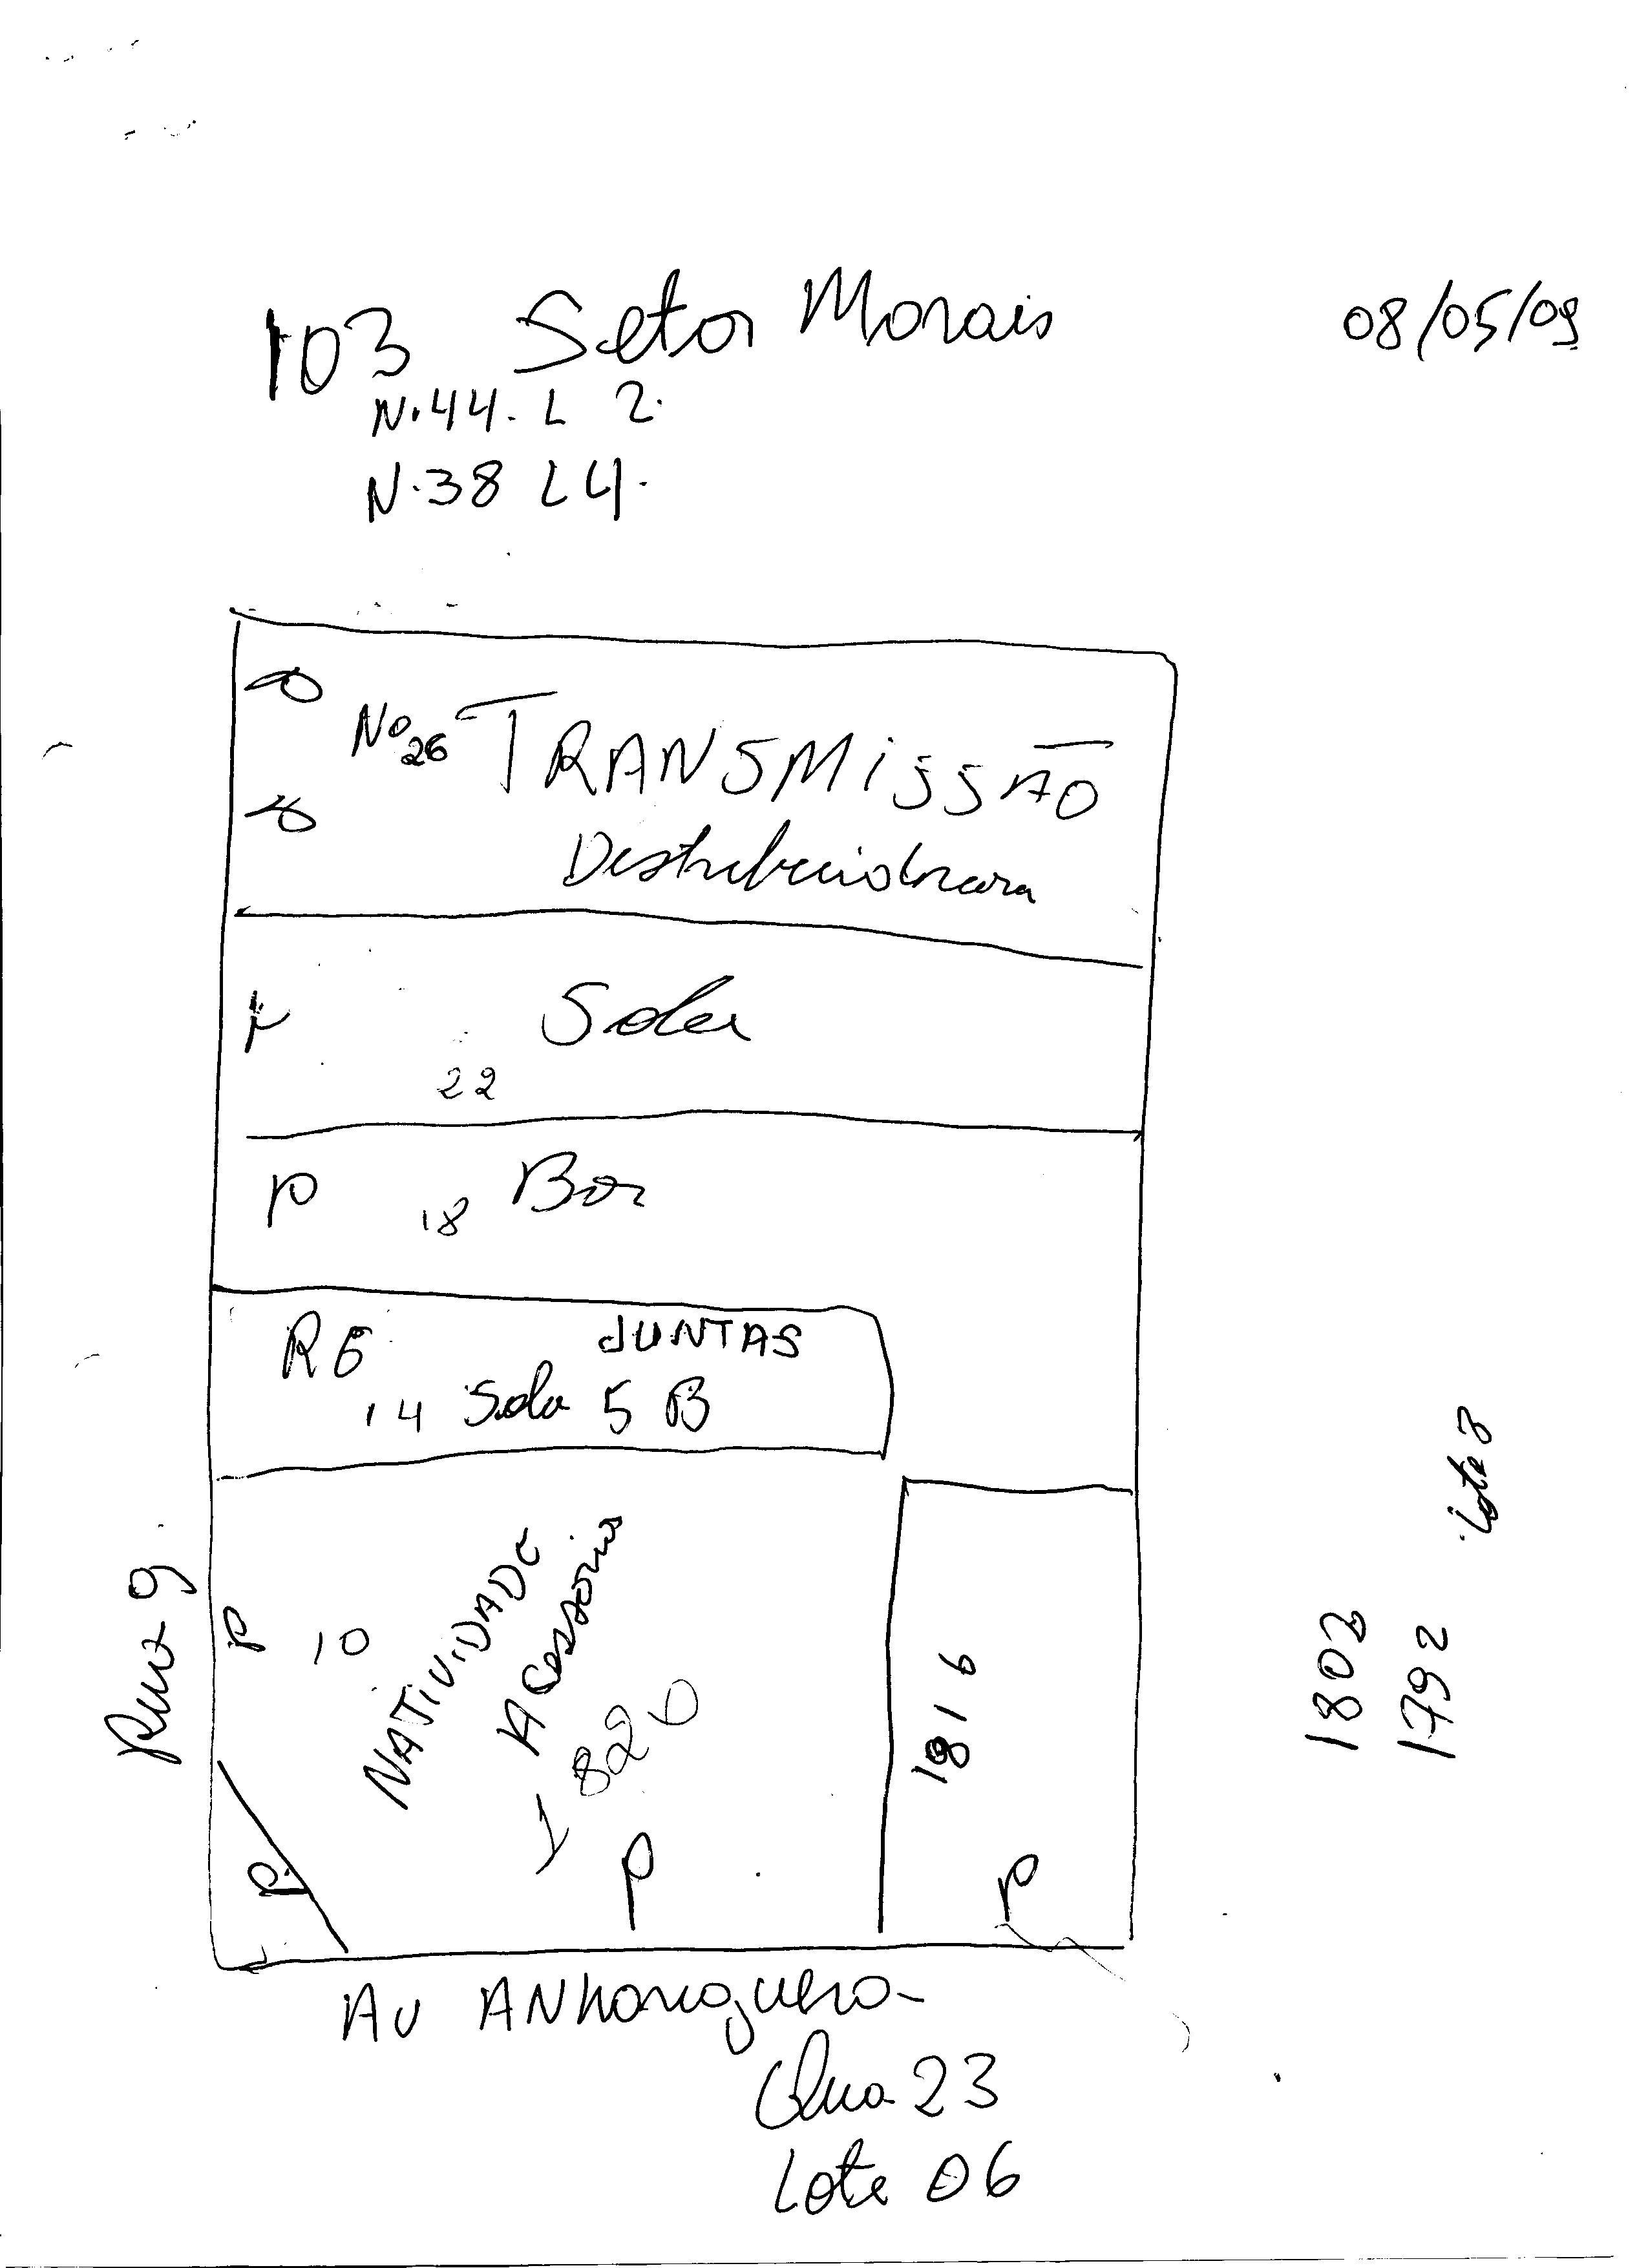 103 Setor Morais 08/05/09
N.44. L 2.
N.38 L4.
Nº 26 TRANSMISSÃO
Sala
22
P 18 Bar
RE JUNTAS
14 Sala 5 B
Rua 9
P 10
NATIVIDADE
Acessorios
1826
P
P
1816
P
1802
1792 Lote 8
AV ANhanguera
Qua 23
Lote 06